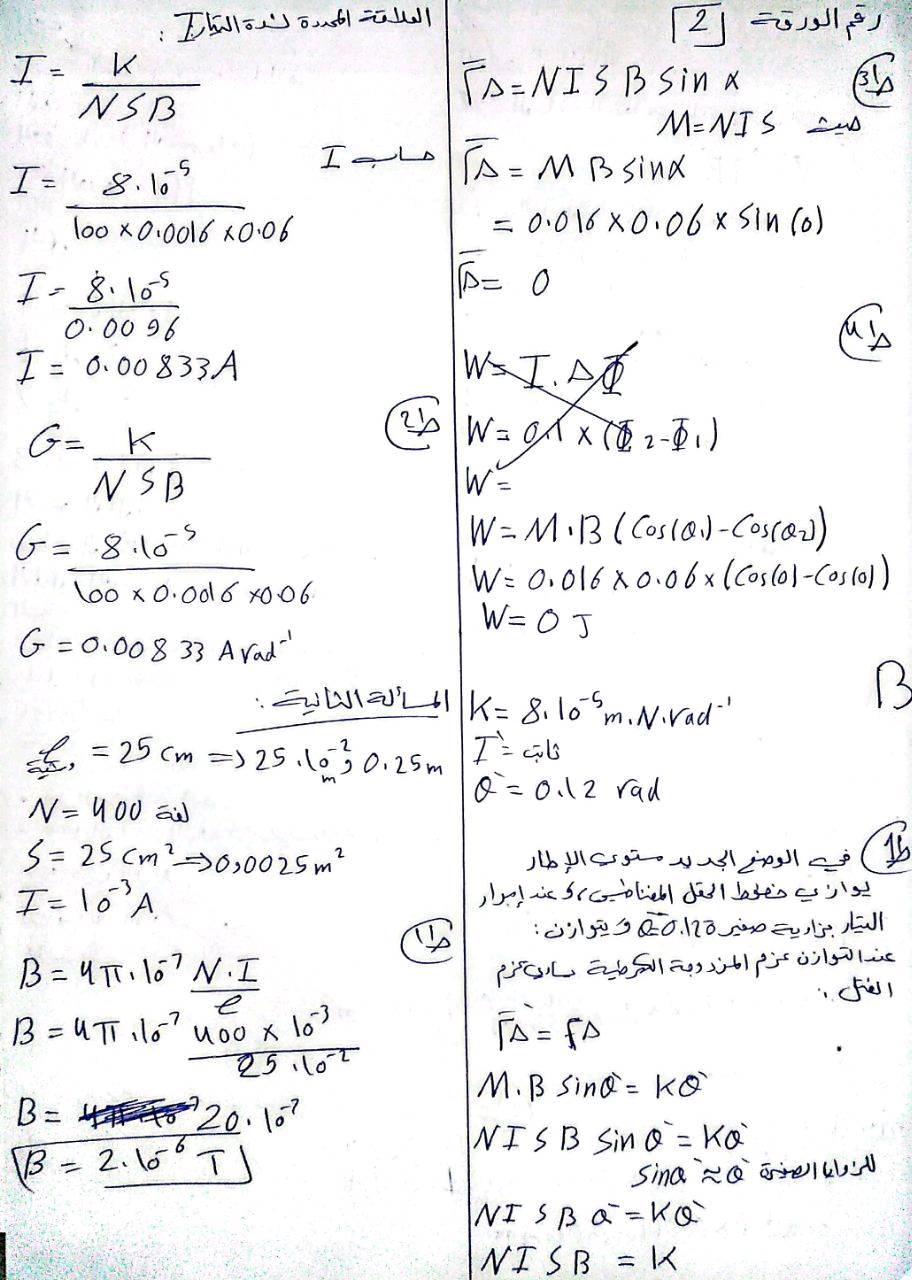 رقم الورقة 2
ط3
Γ̅Δ = N I S B sin α
حيث M = N I S
Γ̅Δ = M B sin α
= 0.016 × 0.06 × sin (0)
Γ̅Δ = 0
ط4
W = I . Δ Φ
W = 0.1 × (Φ2 - Φ1)
W =
W = M . B (Cos(θ1) - Cos(θ2))
W = 0.016 × 0.06 × (Cos(0) - Cos(0))
W = 0 J
B
K = 8.10⁻⁵ m.N.rad⁻¹
I` = ثابت
θ` = 0.12 rad
ط1
في الوضع الجديد مستوى الإطار
يوازي خطوط الحقل المغناطيسي، وعند إمرار
التيار بزاوية صغيرة ويتوازن :
عند التوازن عزم المزدوجة الكهرطيسية ساوى عزم
الفتل :
Γ̅Δ = ΓΔ
M . B sin θ` = K θ`
N I S B sin θ` = K θ`
للزوايا الصغيرة sin θ` ≈ θ`
N I S B θ` = K θ`
N I S B = K
العلاقة المحددة لشدة التيار I :
I = K / N S B
حساب I
I = 8.10⁻⁵ / 100 × 0.0016 × 0.06
I = 8.10⁻⁵ / 0.0096
I = 0.00833 A
ط2
G = K / N S B
G = 8.10⁻⁵ / 100 × 0.0016 × 0.06
G = 0.00833 A rad⁻¹
المسألة الثانية :
ℓ = 25 cm ⇒ 25.10⁻² m و 0.25 m
N = 400 لفة
S = 25 cm² ⇒ 0,0025 m²
I = 10⁻³ A
ط1
B = 4π.10⁻⁷ N.I / ℓ
B = 4π.10⁻⁷ 400 × 10⁻³ / 25.10⁻²
B = 20.10⁻⁷
B = 2.10⁻⁶ T